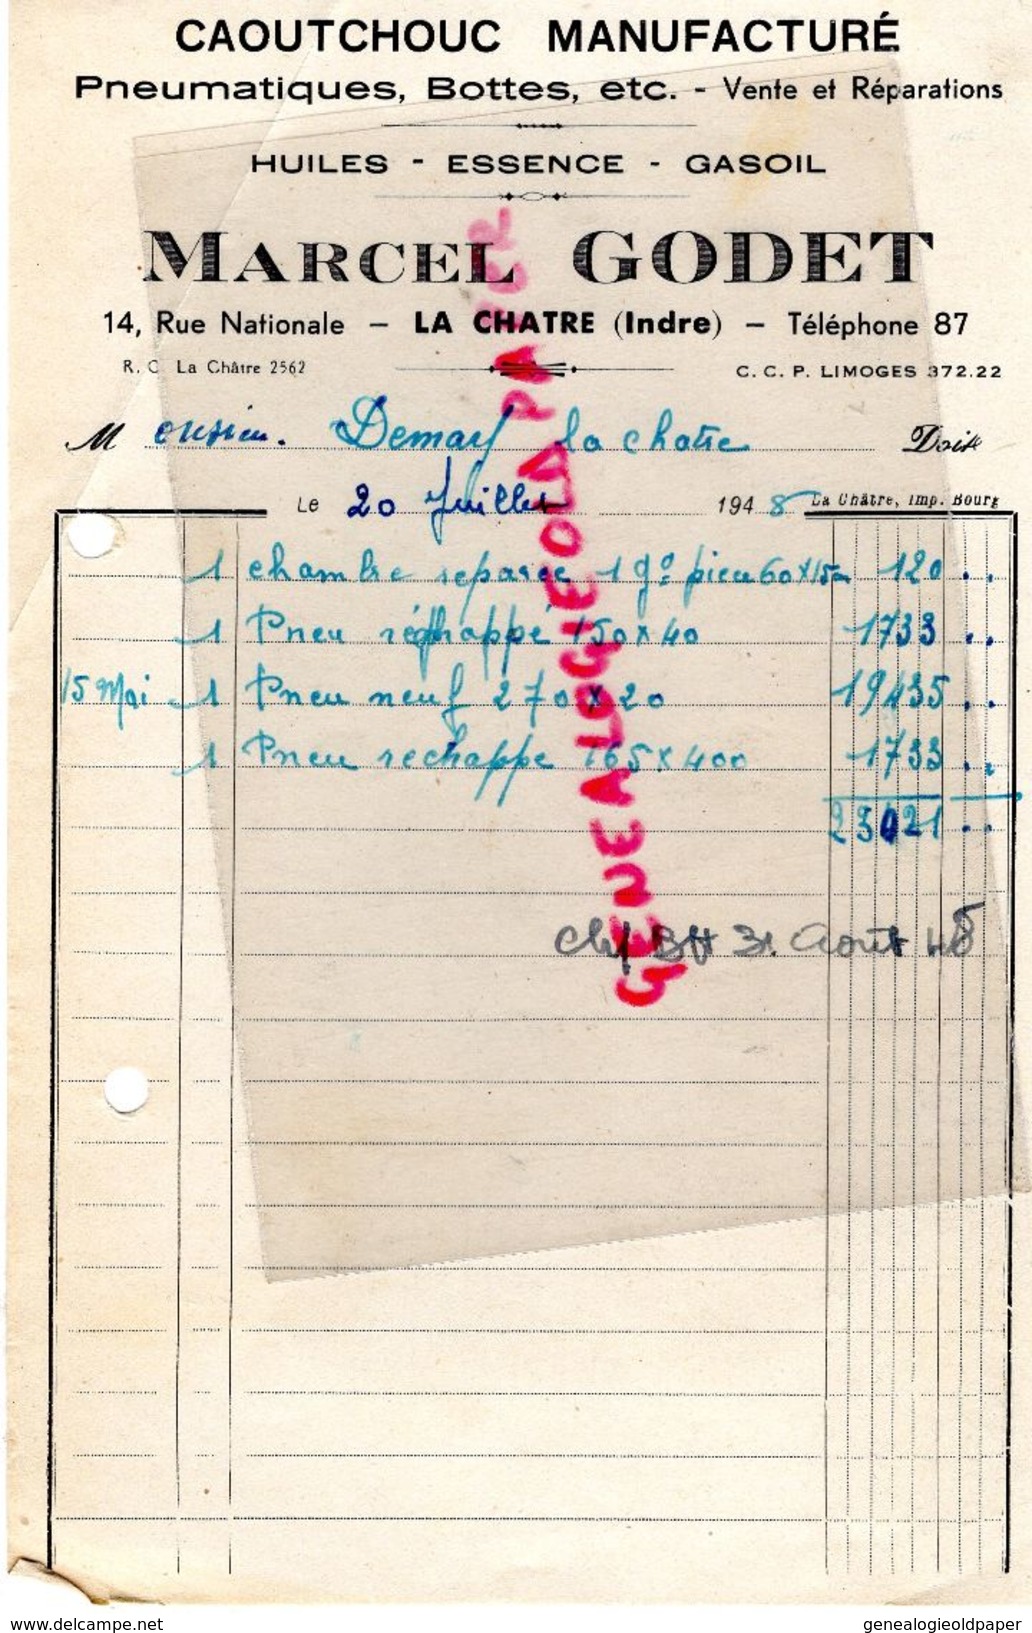 CAOUTCHOUC MANUFACTURÉ
Pneumatiques, Bottes, etc. - Vente et Réparations
HUILES - ESSENCE - GASOIL
MARCEL GODET
14, Rue Nationale – LA CHATRE (Indre) – Téléphone 87
R. C. La Châtre 2562 C. C. P. LIMOGES 372.22
Monsieur. Demay la chatre Doit
Le 20 Juillet 1948 La Châtre, Imp. Bourg
1 chambre reparée 1 piece 60x15 120 . .
1 Pneu réchappé 150x40 1733 . .
15 Mai 1 Pneu neuf 270x20 19435 . .
1 Pneu rechappe 165x400 1733 . .
23021 . .
31 Août 48
GENEALOGIEOLDPAPER
delcampe.net genealogieoldpaper